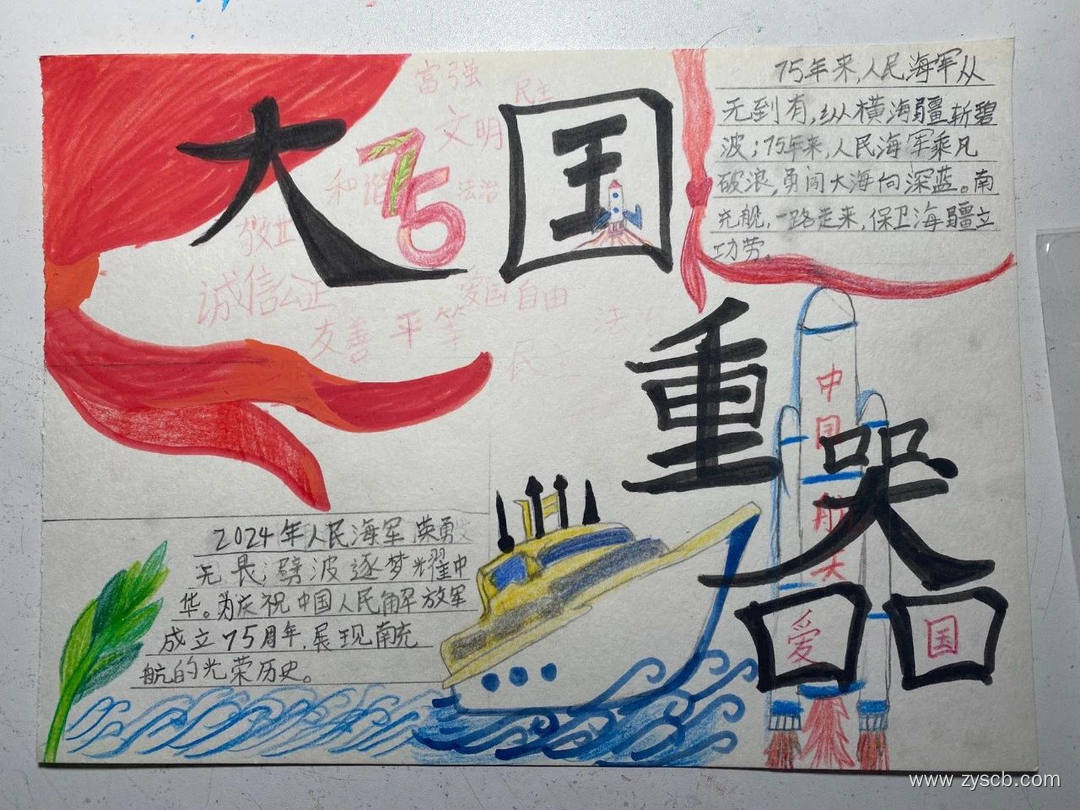 大国
重器
75
富强
民主
文明
和谐
法治
敬业
诚信 公正
爱国 自由
友善 平等
75年来,人民海军从
无到有,纵横海疆斩碧
波;75年来,人民海军乘风
破浪,勇闯大海向深蓝。南
充舰,一路走来,保卫海疆立
功劳。
中国航天
爱
国
2024年人民海军英勇
无畏;劈波逐梦耀中
华。为庆祝中国人民解放军
成立75周年,展现南充
航的光荣历史。
www.zyscb.com